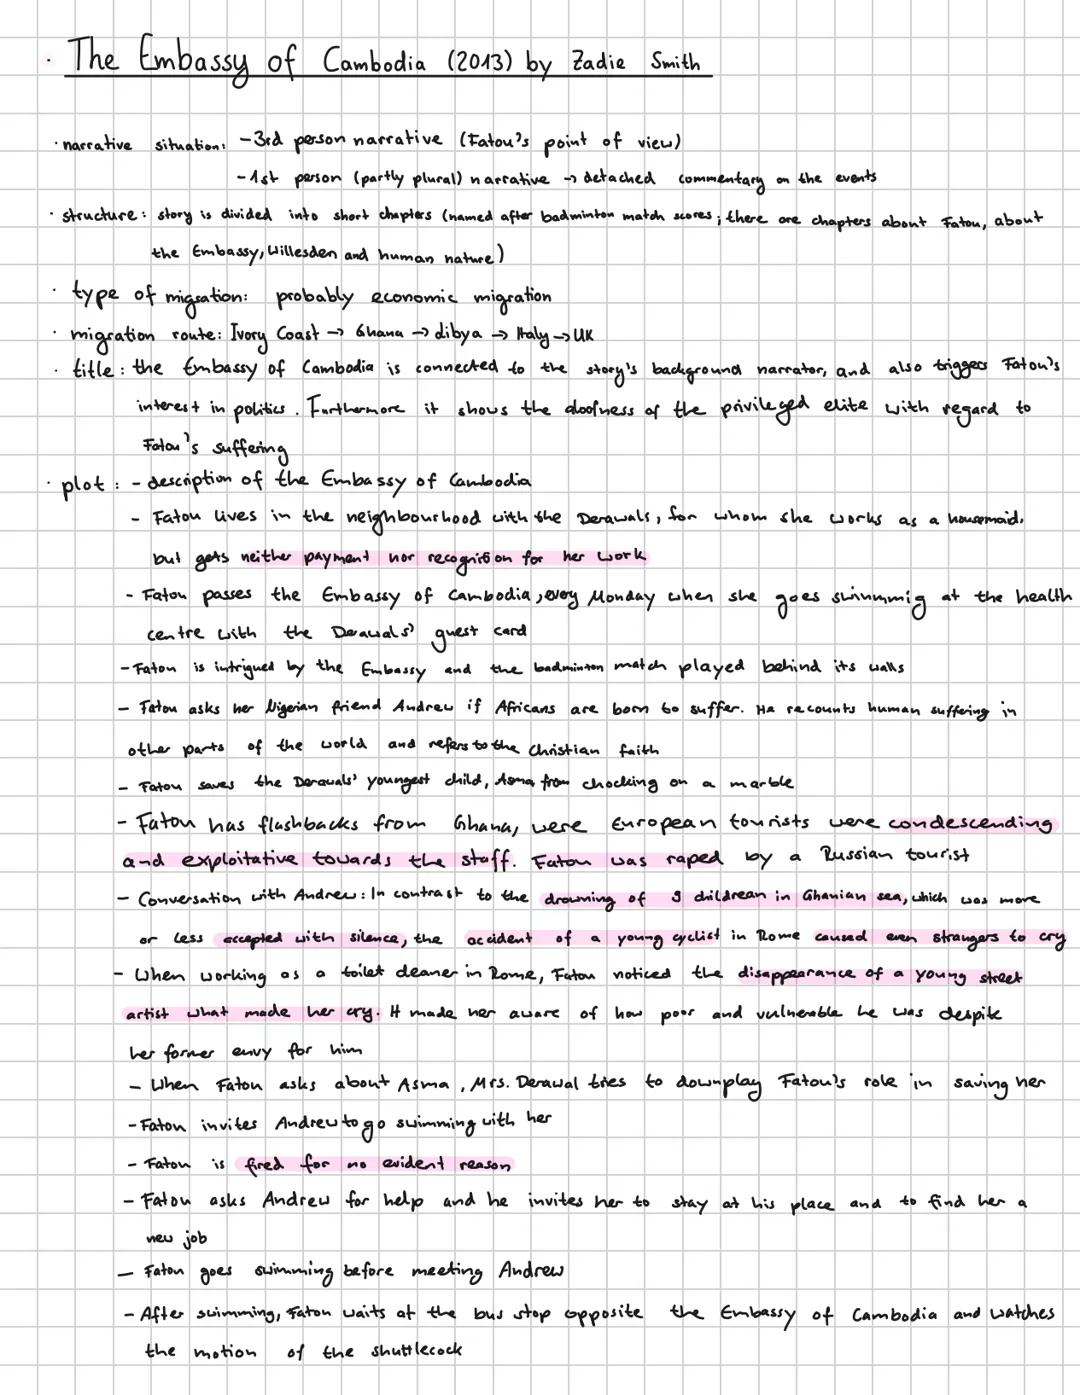 · The Embassy of Cambodia (2013) by Zadie Smith
· narrative situation: - 3rd person narrative (Fatou's point of view)
- 1st person (partly plural) narrative → detached commentary on the events
· structure: story is divided into short chapters (named after badminton match scores; there are chapters about Fatou, about
the Embassy, Willesden and human nature)
· type of migration: probably economic migration
· migration route: Ivory Coast → Ghana → dibya → Italy → UK
· title: the Embassy of Cambodia is connected to the story's background narrator, and also triggers Fatou's
interest in politics. Furthermore it shows the aloofness of the privileged elite with regard to
Fatou's suffering
· plot: - description of the Embassy of Cambodia
- Fatou lives in the neighbourhood with the Derawals, for whom she works as a housemaid,
but gets neither payment nor recognition for her work
- Fatou passes the Embassy of Cambodia, every Monday when she goes swimmig at the health
centre with the Derawals' guest card
- Fatou is intrigued by the Embassy and the badminton match played behind its walls
- Fatou asks her Nigerian friend Andrew if Africans are born to suffer. He recounts human suffering in
other parts of the world and refers to the Christian faith
- Fatou saves the Derawals' youngest child, Asma, from chocking on a marble
- Fatou has flashbacks from Ghana, were European tourists were condescending
and exploitative towards the staff. Fatou was raped by a Russian tourist
- Conversation with Andrew: In contrast to the drowning of 9 childrean in Ghanian sea, which was more
or less accepted with silence, the accident of a young cyclist in Rome caused even strangers to cry
- When working as a toilet cleaner in Rome, Fatou noticed the disappearance of a young street
artist what made her cry. It made her aware of how poor and vulnerable he was despite
her former envy for him
- When Fatou asks about Asma, Mrs. Derawal tries to downplay Fatou's role in saving her
- Fatou invites Andrew to go swimming with her
- Fatou is fired for no evident reason
- Fatou asks Andrew for help and he invites her to stay at his place and to find her a
new job
- Fatou goes swimming before meeting Andrew
- After swimming, Fatou waits at the bus stop opposite the Embassy of Cambodia and watches
the motion of the shuttlecock